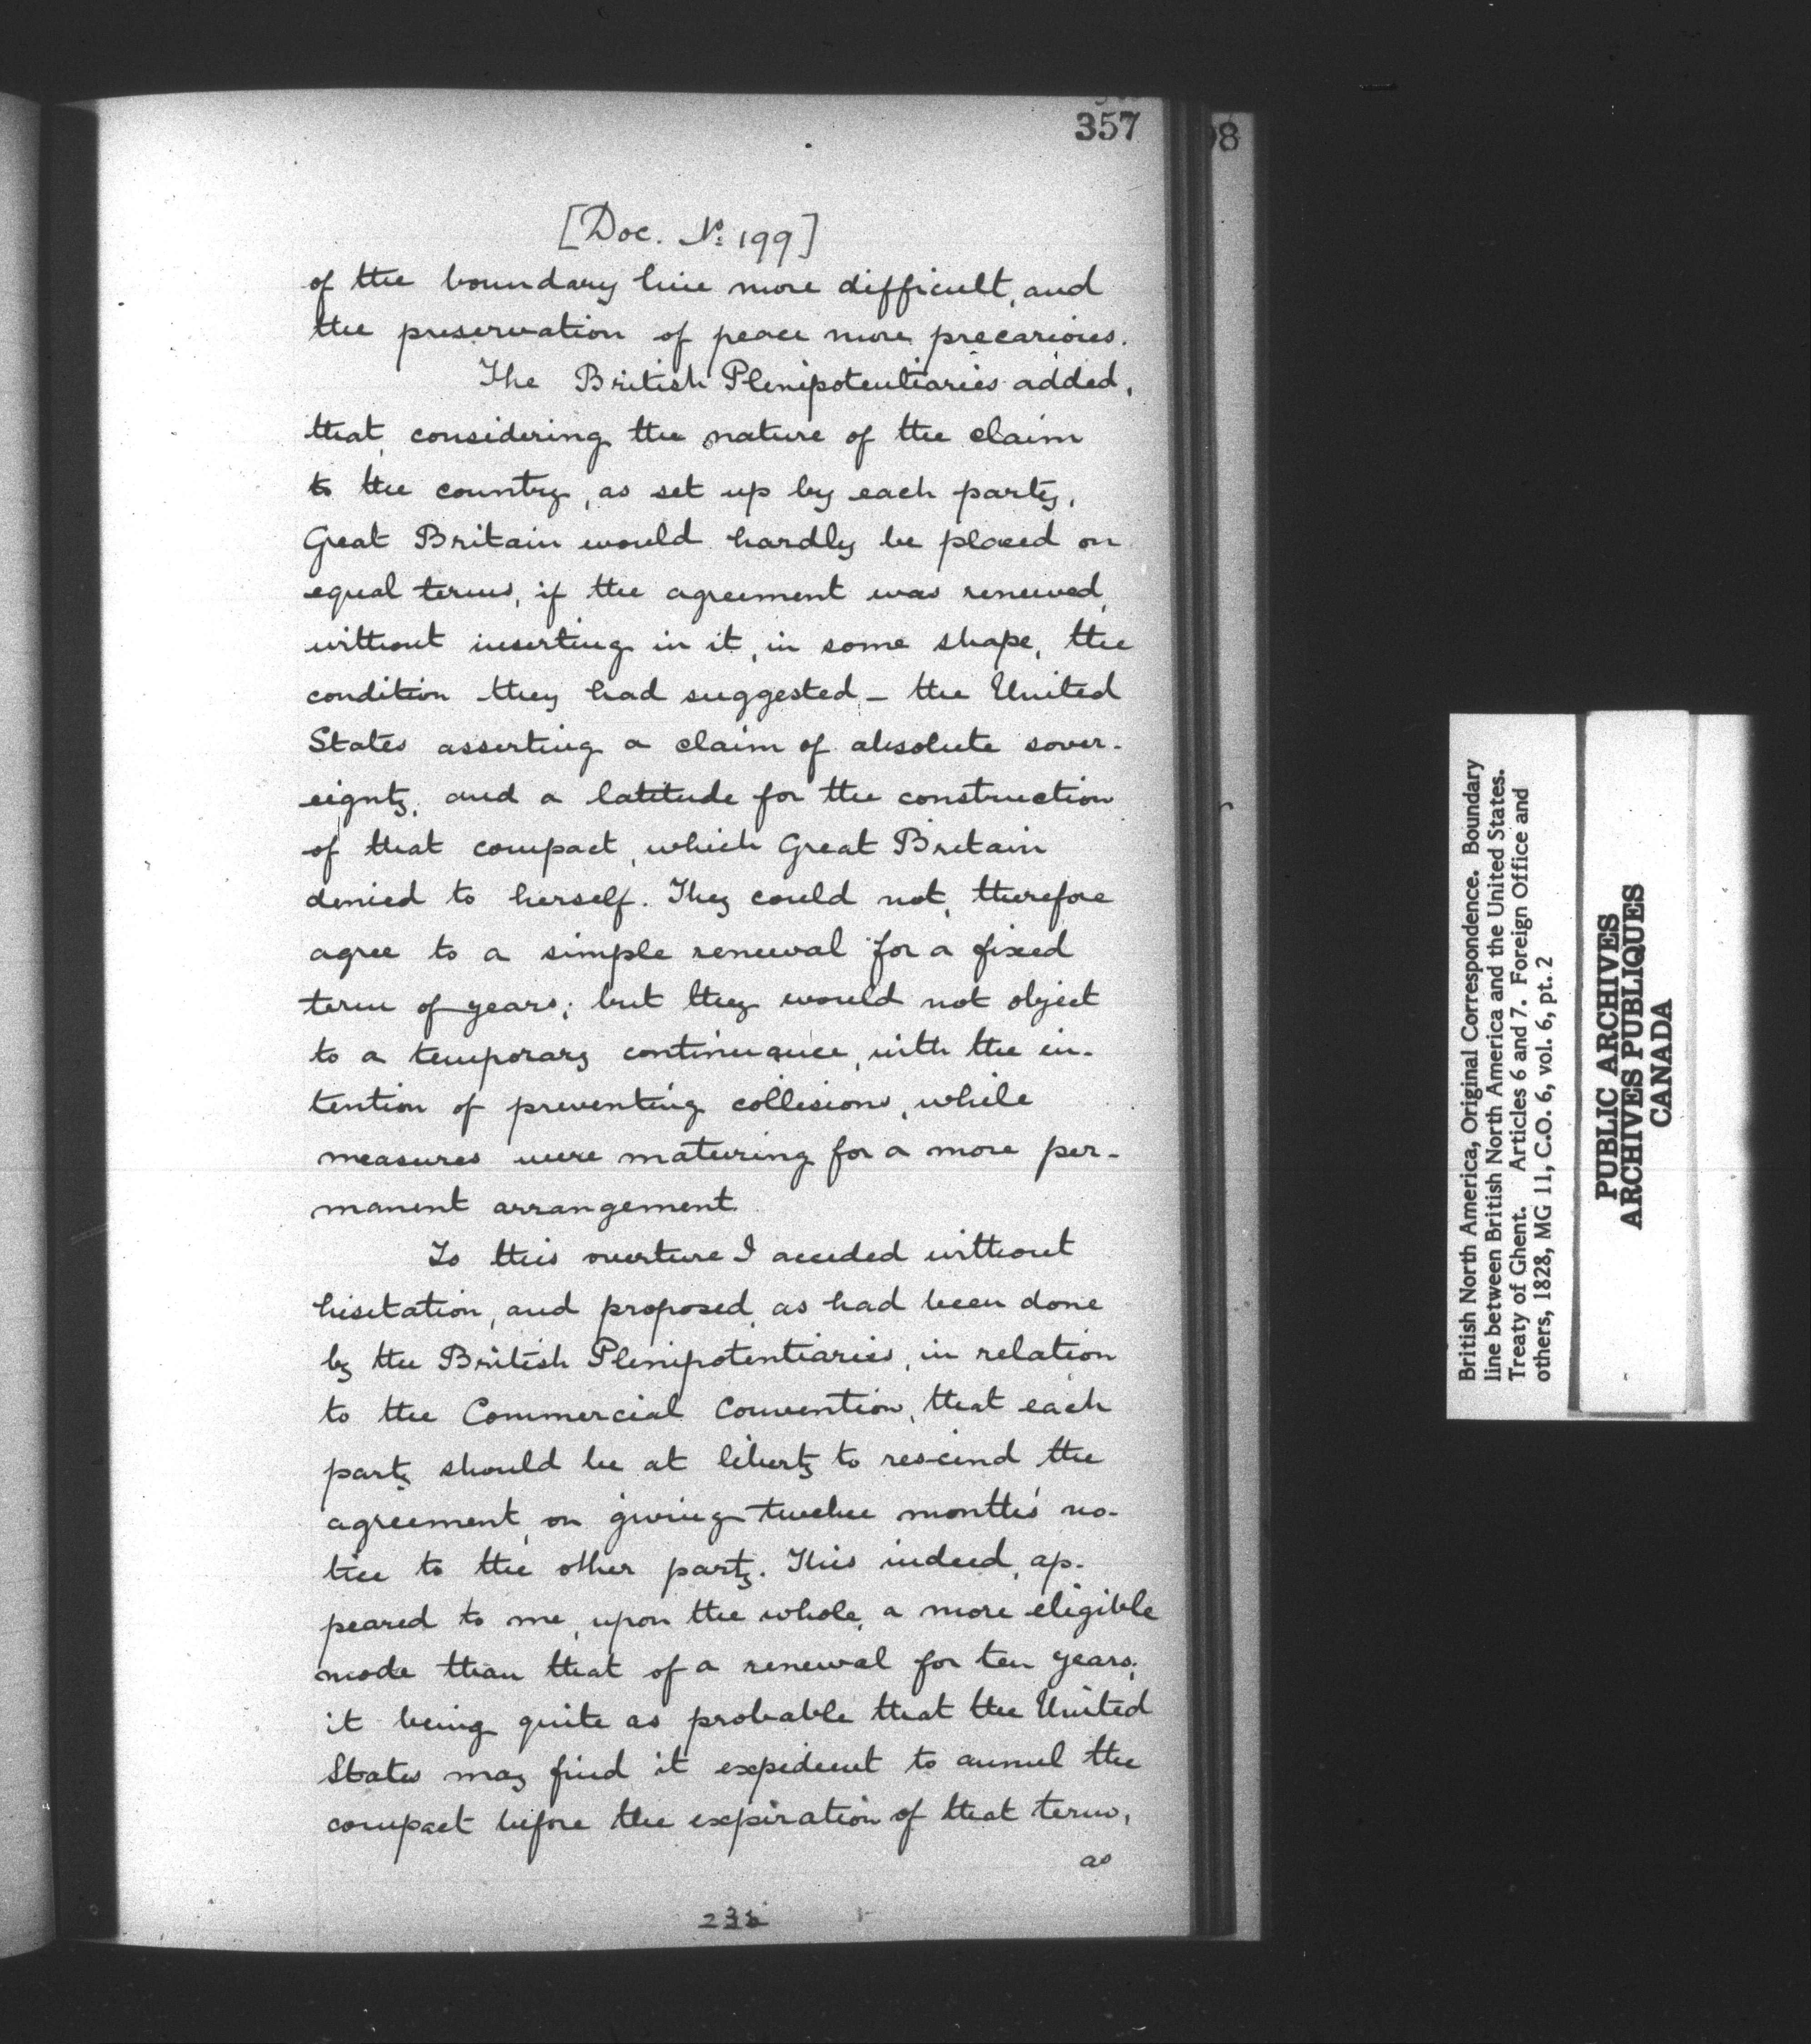 357
98
[Doc. No. 199]
of the boundary line more difficult, and
the preservation of peace more precarious.
The British Plenipotentiaries added,
that, considering the nature of the claim
to the country, as set up by each party,
Great Britain would hardly be placed on
equal terms, if the agreement was renewed,
without inserting in it, in some shape, the
condition they had suggested — the United
States asserting a claim of absolute sover-
eignty, and a latitude for the construction
of that compact, which Great Britain
denied to herself. They could not, therefore
agree to a simple renewal for a fixed
term of years; but they would not object
to a temporary continuance, with the in-
tention of preventing collisions, while
measures were maturing for a more per-
manent arrangement.
To this overture I acceded without
hesitation, and proposed, as had been done
by the British Plenipotentiaries, in relation
to the Commercial Convention, that each
party should be at liberty to rescind the
agreement, on giving twelve months' no-
tice to the other party. This indeed, ap-
peared to me, upon the whole, a more eligible
mode than that of a renewal for ten years;
it being quite as probable that the United
States may find it expedient to annul the
compact before the expiration of that term,
as
British North America, Original Correspondence. Boundary
line between British North America and the United States.
Treaty of Ghent. Articles 6 and 7. Foreign Office and
others, 1828, MG 11, C.O. 6, vol. 6, pt. 2
PUBLIC ARCHIVES
ARCHIVES PUBLIQUES
CANADA